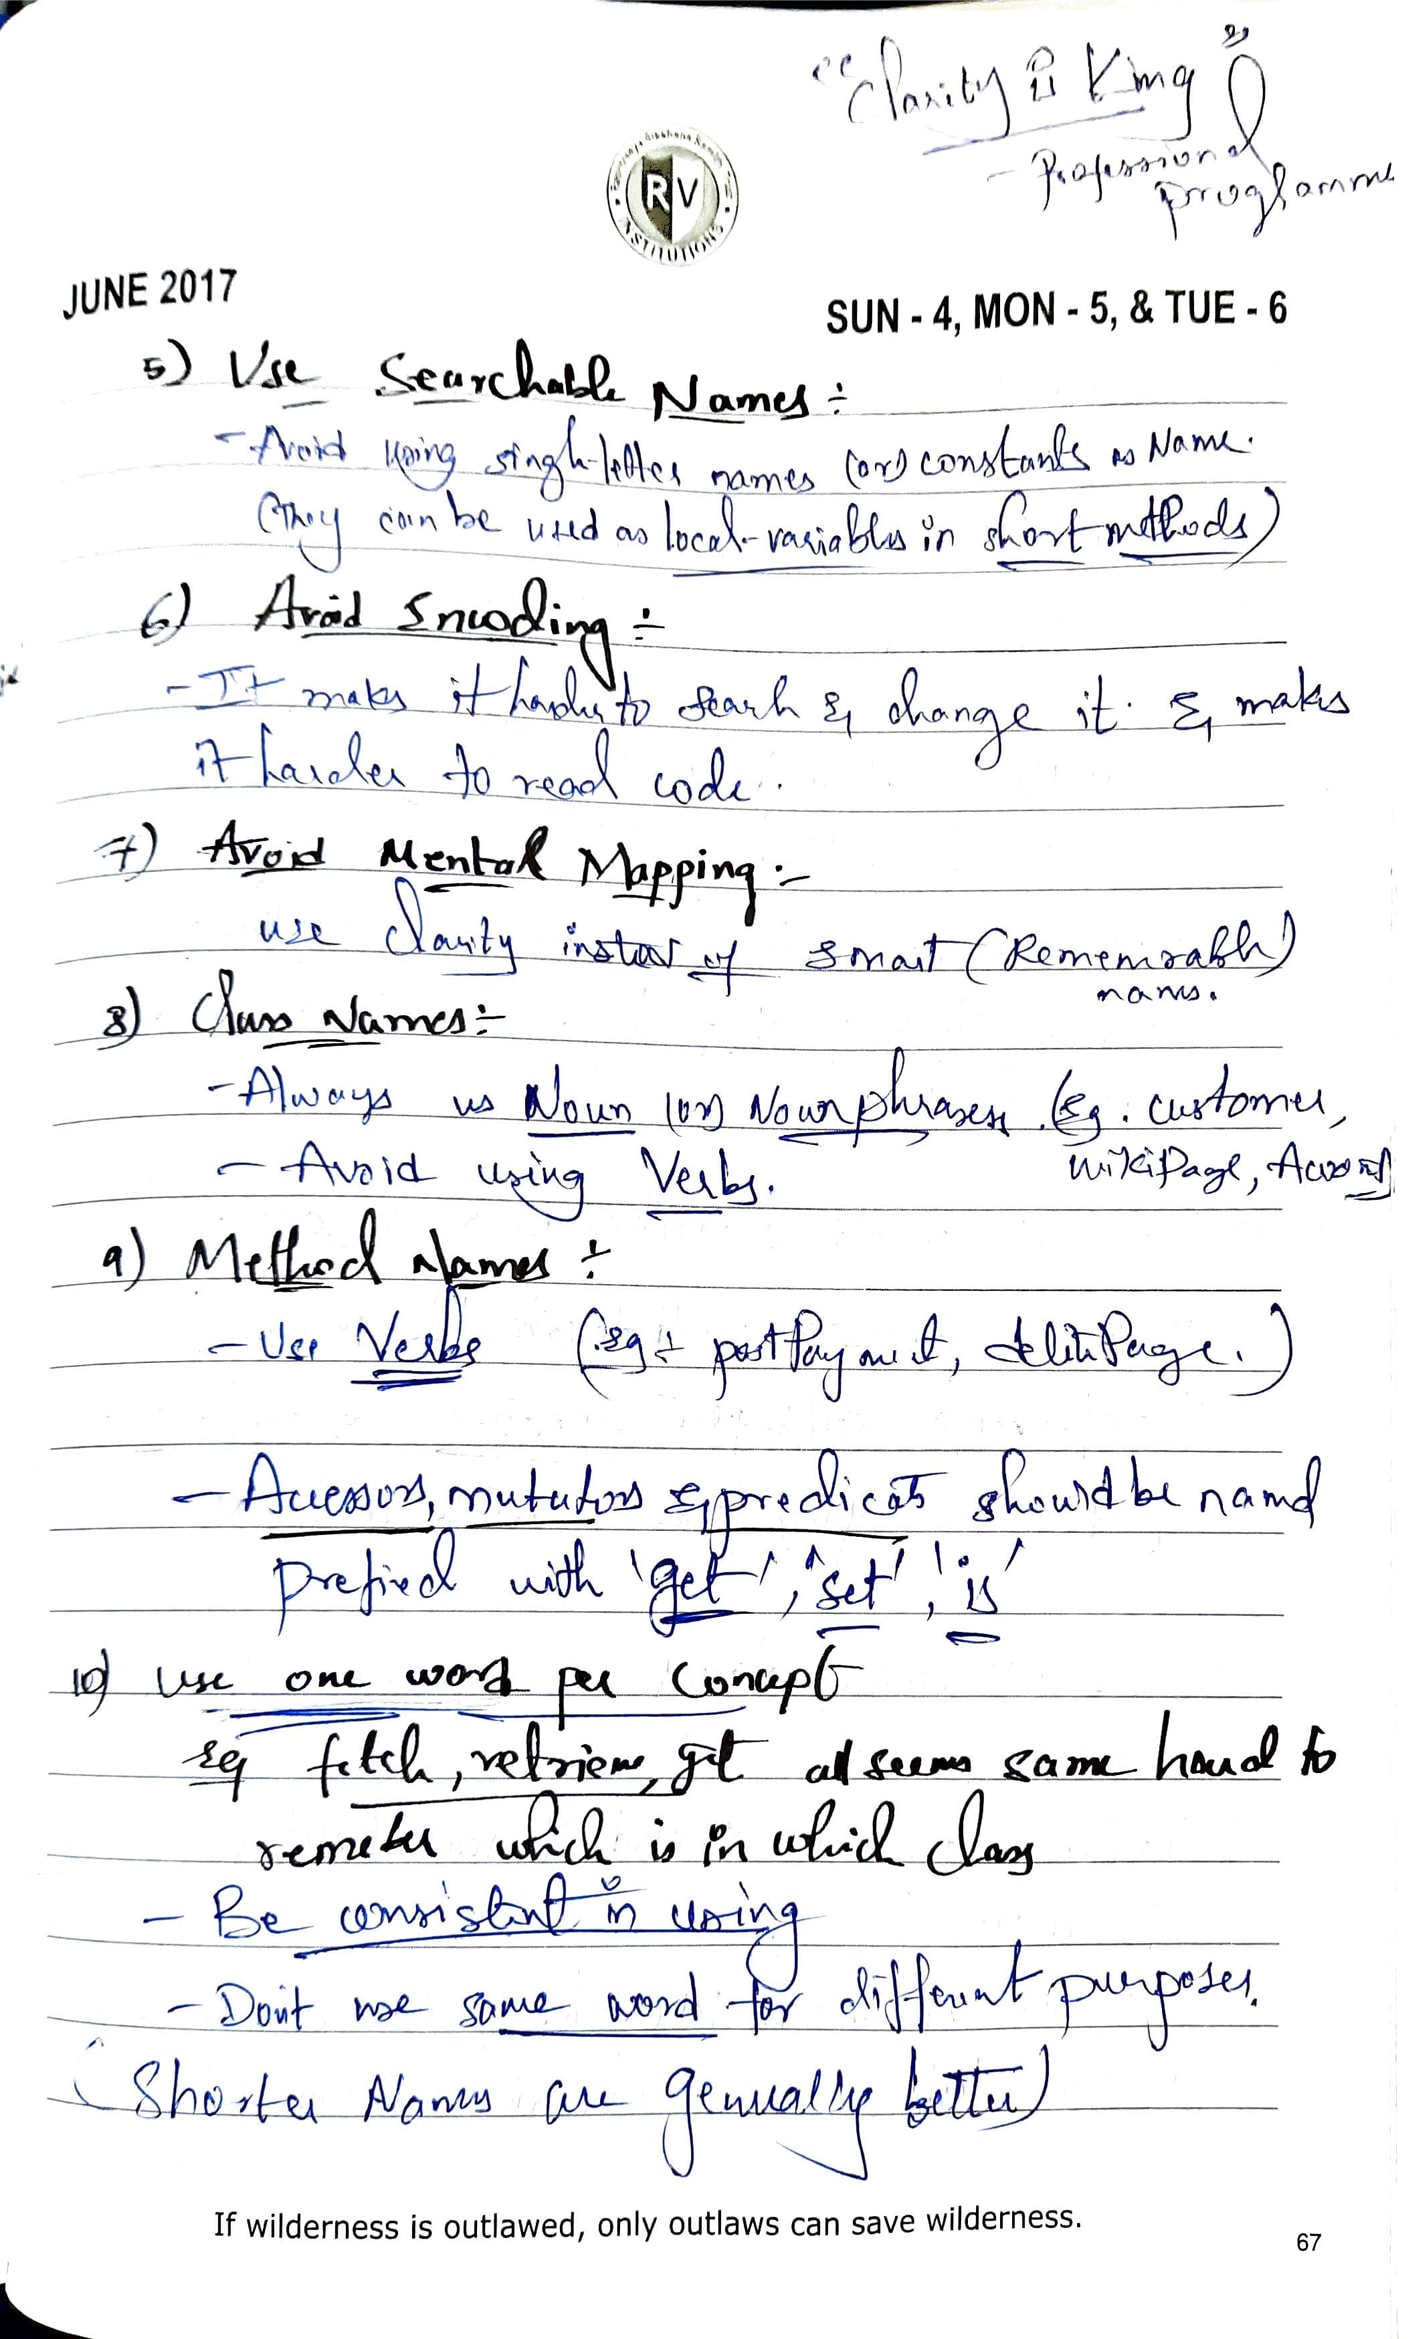 "Clarity is King"
- Professional
programme
RV
INSTITUTIONS
JUNE 2017
SUN - 4, MON - 5, & TUE - 6
5) Use Searchable Names :-
- Avoid using single-letter names (or) constants as Name.
(They can be used as local-variables in short methods)
6) Avoid Encoding :-
- It makes it harder to search & change it. & makes
it harder to read code.
7) Avoid Mental Mapping :-
use clarity instead of smart (Rememrable)
names.
8) Class Names :-
- Always us Noun (or) Noun phrases. (eg. customer,
wikiPage, Account)
- Avoid using Verbs.
9) Method Names :-
- Use Verbs (eg :- postPayment, deletePage.)
- Accessors, mututors & predicats should be named
prefixed with 'get', 'set', 'is'
10) use one word per concept
eg fetch, retrieve, get all seems same hard to
which is in which class
- Be consistent in using
- Don't use same word for different purposes.
(Shorter Names are genually better)
If wilderness is outlawed, only outlaws can save wilderness.
67